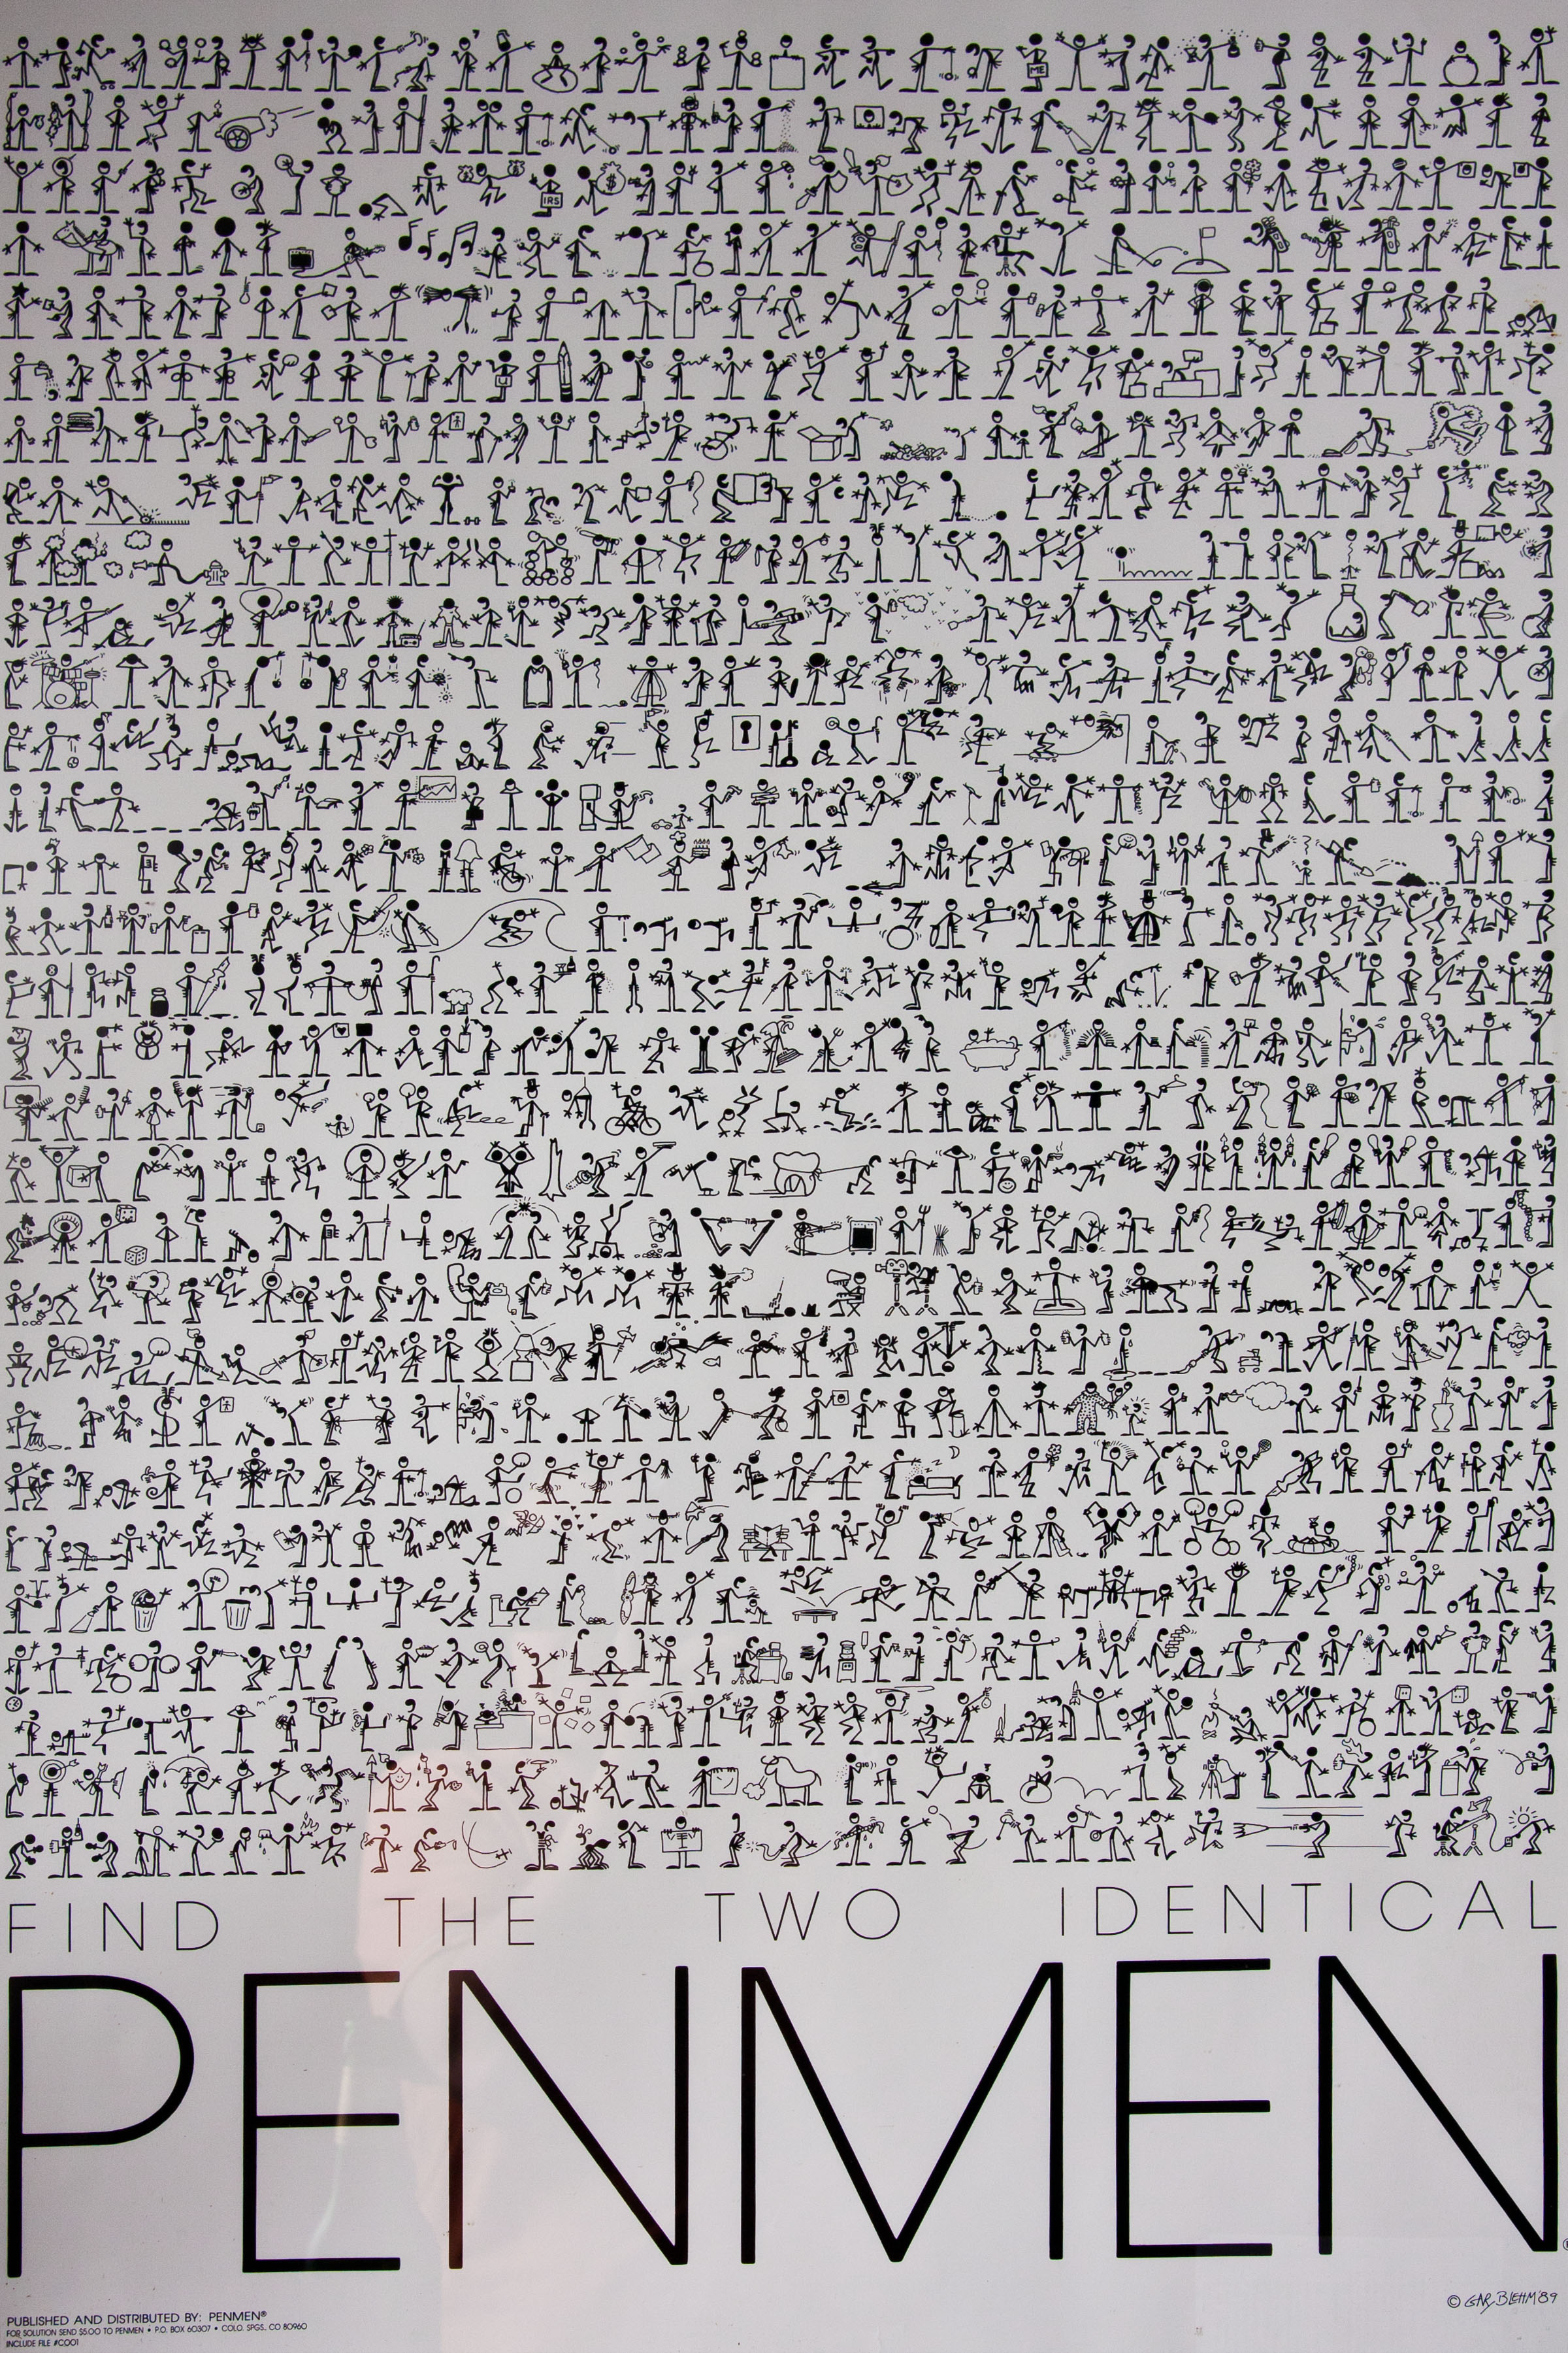 ME
IRS
$
FIND THE TWO IDENTICAL
PENMEN®
© GARY BLEHM '89
PUBLISHED AND DISTRIBUTED BY: PENMEN®
FOR SOLUTION SEND $5.00 TO PENMEN • P.O. BOX 60307 • COLO. SPGS., CO 80960
INCLUDE FILE #C001